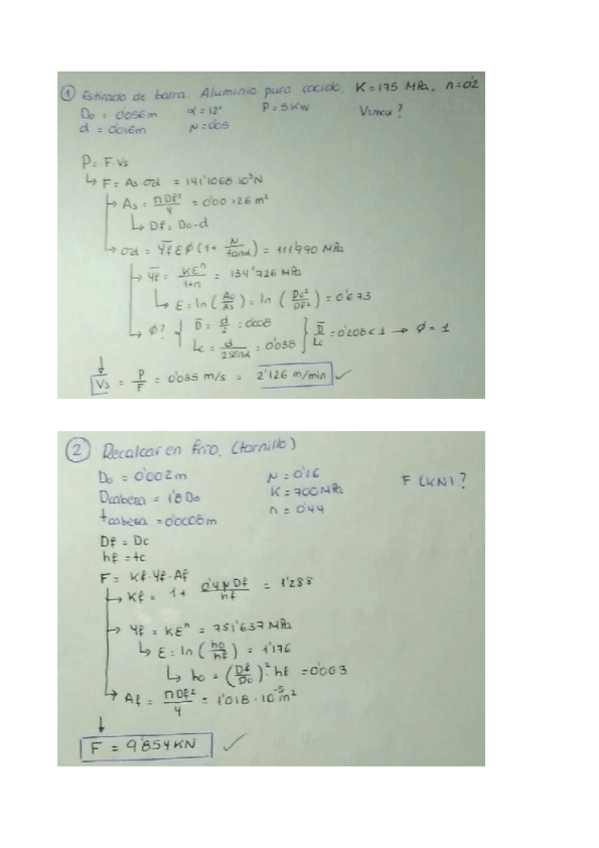 ① Estirado de barra. Aluminio puro cocido. K=175 MPa, n=0'2
Do = 0'056m α=12° P=5KW Vsmax?
d = 0'016m μ=0'05
P= F·Vs
↳ F= As·σd = 141'1068·10³N
→ As= πDf²/4 = 0'00126 m²
↳ Df= Do-d
→ σd = Ȳf ε Ø (1+ μ/tanα) = 111'990 MPa
→ Ȳf = Kεⁿ/1+n = 134'726 MPa
↳ ε= ln (Ao/As) = ln (Do²/Df²) = 0'673
→ Ø? { D̄ = d/2 = 0'008
Lc = d/2senα = 0'038 } D̄/Lc = 0'208<1 → Ø= 1
Vs = P/F = 0'035 m/s = 2'126 m/min ✓
② Recalcar en frío. (tornillo)
Do = 0'002m μ = 0'16 F (KN)?
Dcabeza = 1'8 Do K = 700MPa
tcabeza = 0'0008m n = 0'44
Df = Dc
hf = tc
F= Kf·Yf·Af
→ Kf= 1+ 0'4μDf/hf = 1'288
→ Yf = Kεⁿ = 751'637 MPa
↳ ε= ln (ho/hf) = 1'176
↳ ho = (Df/Dc)²·hf = 0'003
→ Af = πDf²/4 = 1'018·10⁻⁵m²
F = 9'854KN ✓